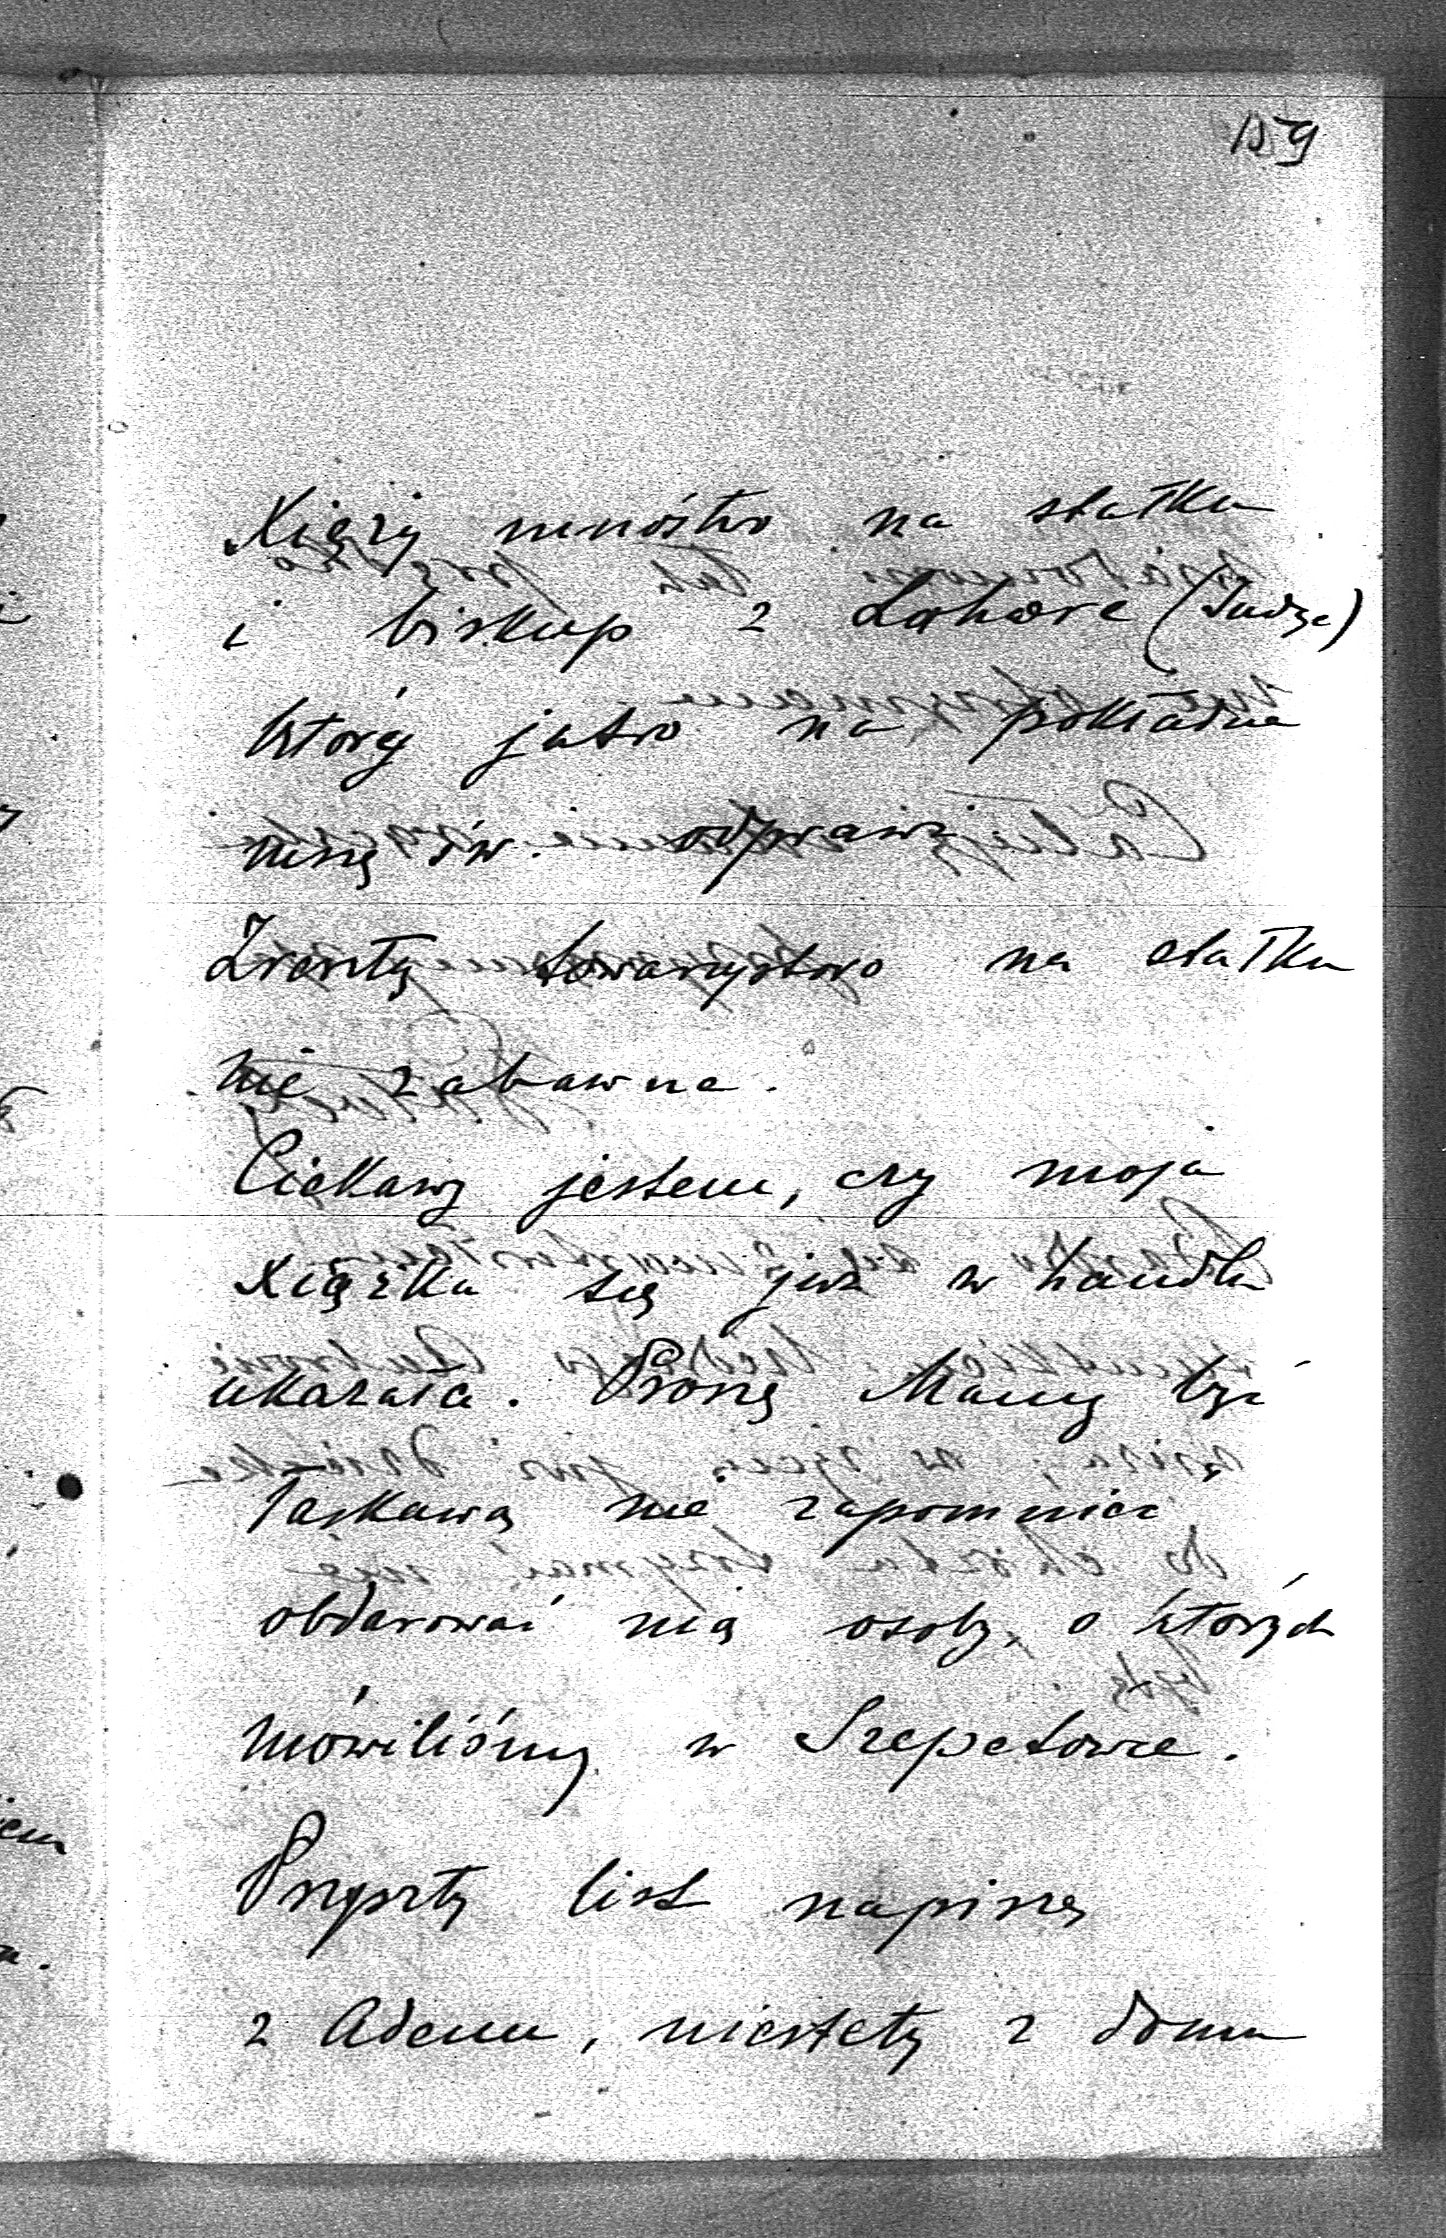 159
Xięży mnóstwo na statku
i biskup z Lahore (Indye)
który jutro na pokładzie
mszę św. odprawi.
Zresztą towarzystwo na statku
nie zabawne.
Ciekawy jestem, czy moja
Xiążka się już w handlu
ukazała. Proszę Mamy być
łaskawą nie zapomnieć
obdarować nią osoby, o których
mówiliśmy w Szepetowce.
Przyszły list napiszę
z Adenu, niestety z domu